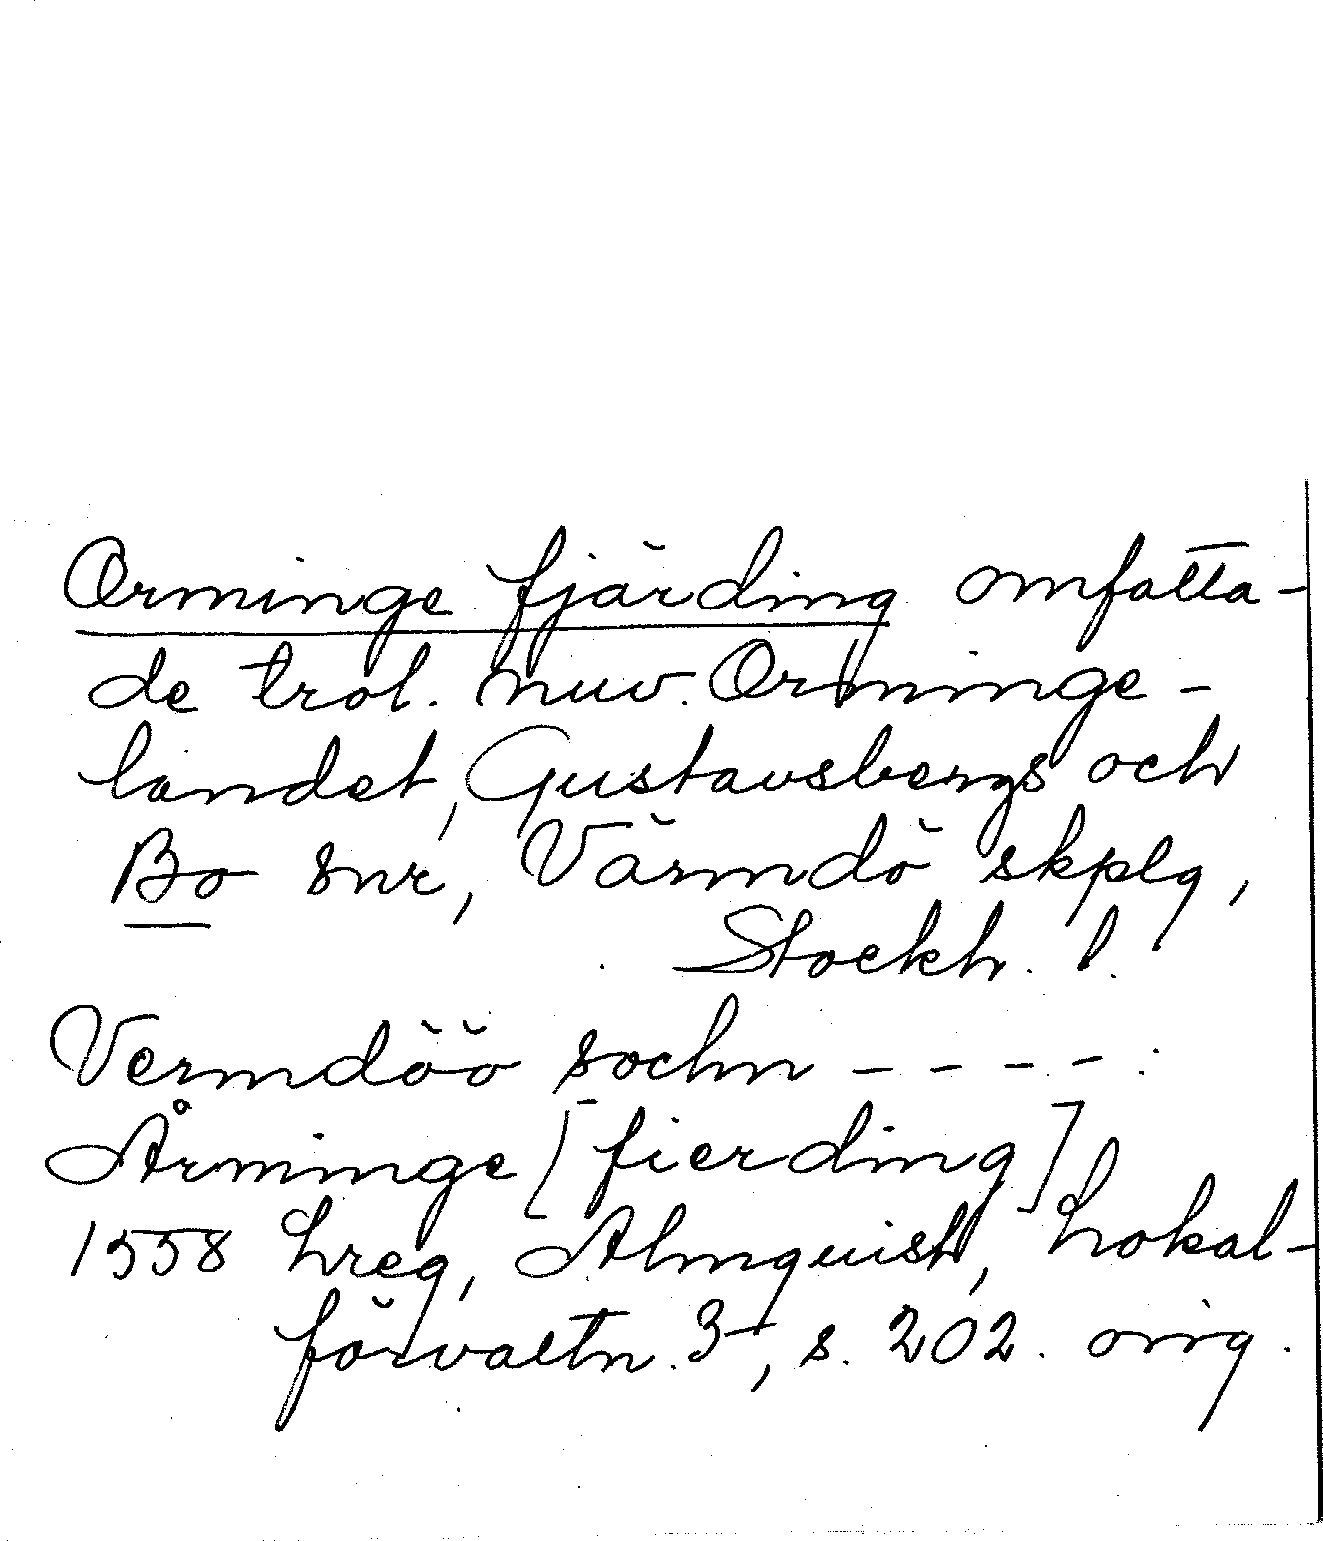 Orminge fjärding omfatta-
de trol. nuv. Orminge-
landet, Gustavsbergs och
Bo snr, Värmdö skplg,
Stockh. l.
Vermdöö sochn - - - - :
Årminge [fierding]
1558 hreg, Almquist, Lokal-
förvaltn. 3, s. 202. orig.